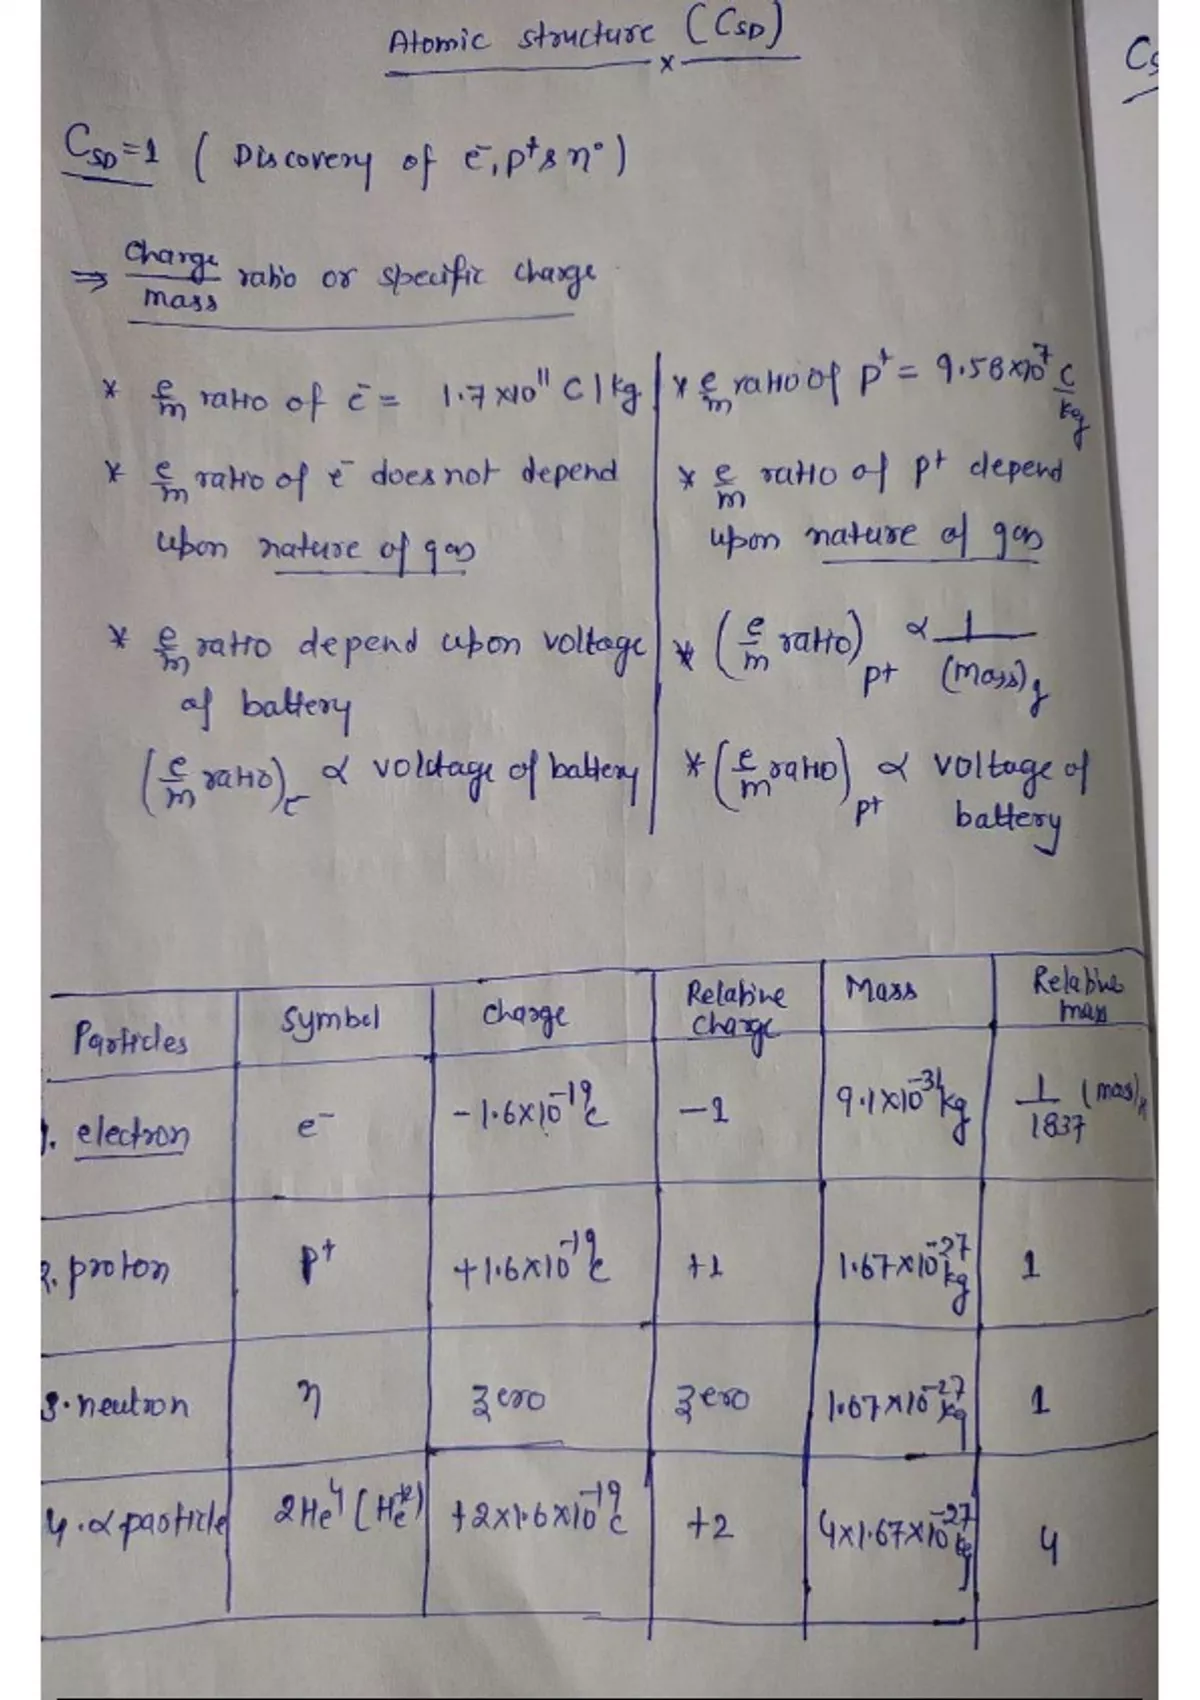 Atomic structure (CSD)
x
Cs
CSD=1 ( Discovery of e⁻, p⁺ & n° )
⇒ Charge/mass ratio or specific charge
* e/m ratio of e⁻ = 1.7×10¹¹ C/kg
* e/m ratio of e⁻ does not depend
upon nature of gas
* e/m ratio depend upon voltage
of battery
(e/m ratio)e⁻ ∝ voltage of battery
* e/m ratio of p⁺ = 9.58×10⁷ C/kg
* e/m ratio of p⁺ depend
upon nature of gas
* (e/m ratio)p⁺ ∝ 1/(Mass)g
* (e/m ratio)p⁺ ∝ voltage of
battery
Particles Symbol Charge Relative Charge Mass Relative mass
1. electron e⁻ -1.6×10⁻¹⁹C -1 9.1×10⁻³¹kg 1/1837 (mas)H
2. proton p⁺ +1.6×10⁻¹⁹C +1 1.67×10⁻²⁷kg 1
3. neutron n zero zero 1.67×10⁻²⁷kg 1
4. α particle 2He⁴ (He⁺²) +2×1.6×10⁻¹⁹C +2 4×1.67×10⁻²⁷kg 4